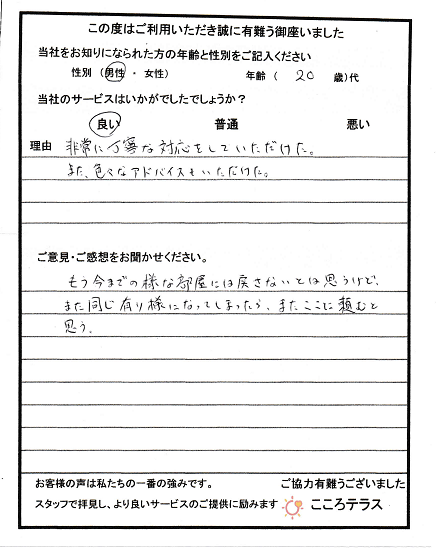 この度はご利用いただき誠に有難う御座いました
当社をお知りになられた方の年齢と性別をご記入ください
性別 (男性 ・ 女性) 年齢 ( 20 歳)代
当社のサービスはいかがでしたでしょうか?
良い 普通 悪い
理由 非常に丁寧な対応をしていただけた。
また、色々なアドバイスもいただけた。
ご意見・ご感想をお聞かせください。
もう今までの様な部屋には戻さないとは思うけど、
また同じ有り様になってしまったら、またここに頼むと
思う。
お客様の声は私たちの一番の強みです。 ご協力有難うございました
スタッフで拝見し、より良いサービスのご提供に励みます こころテラス